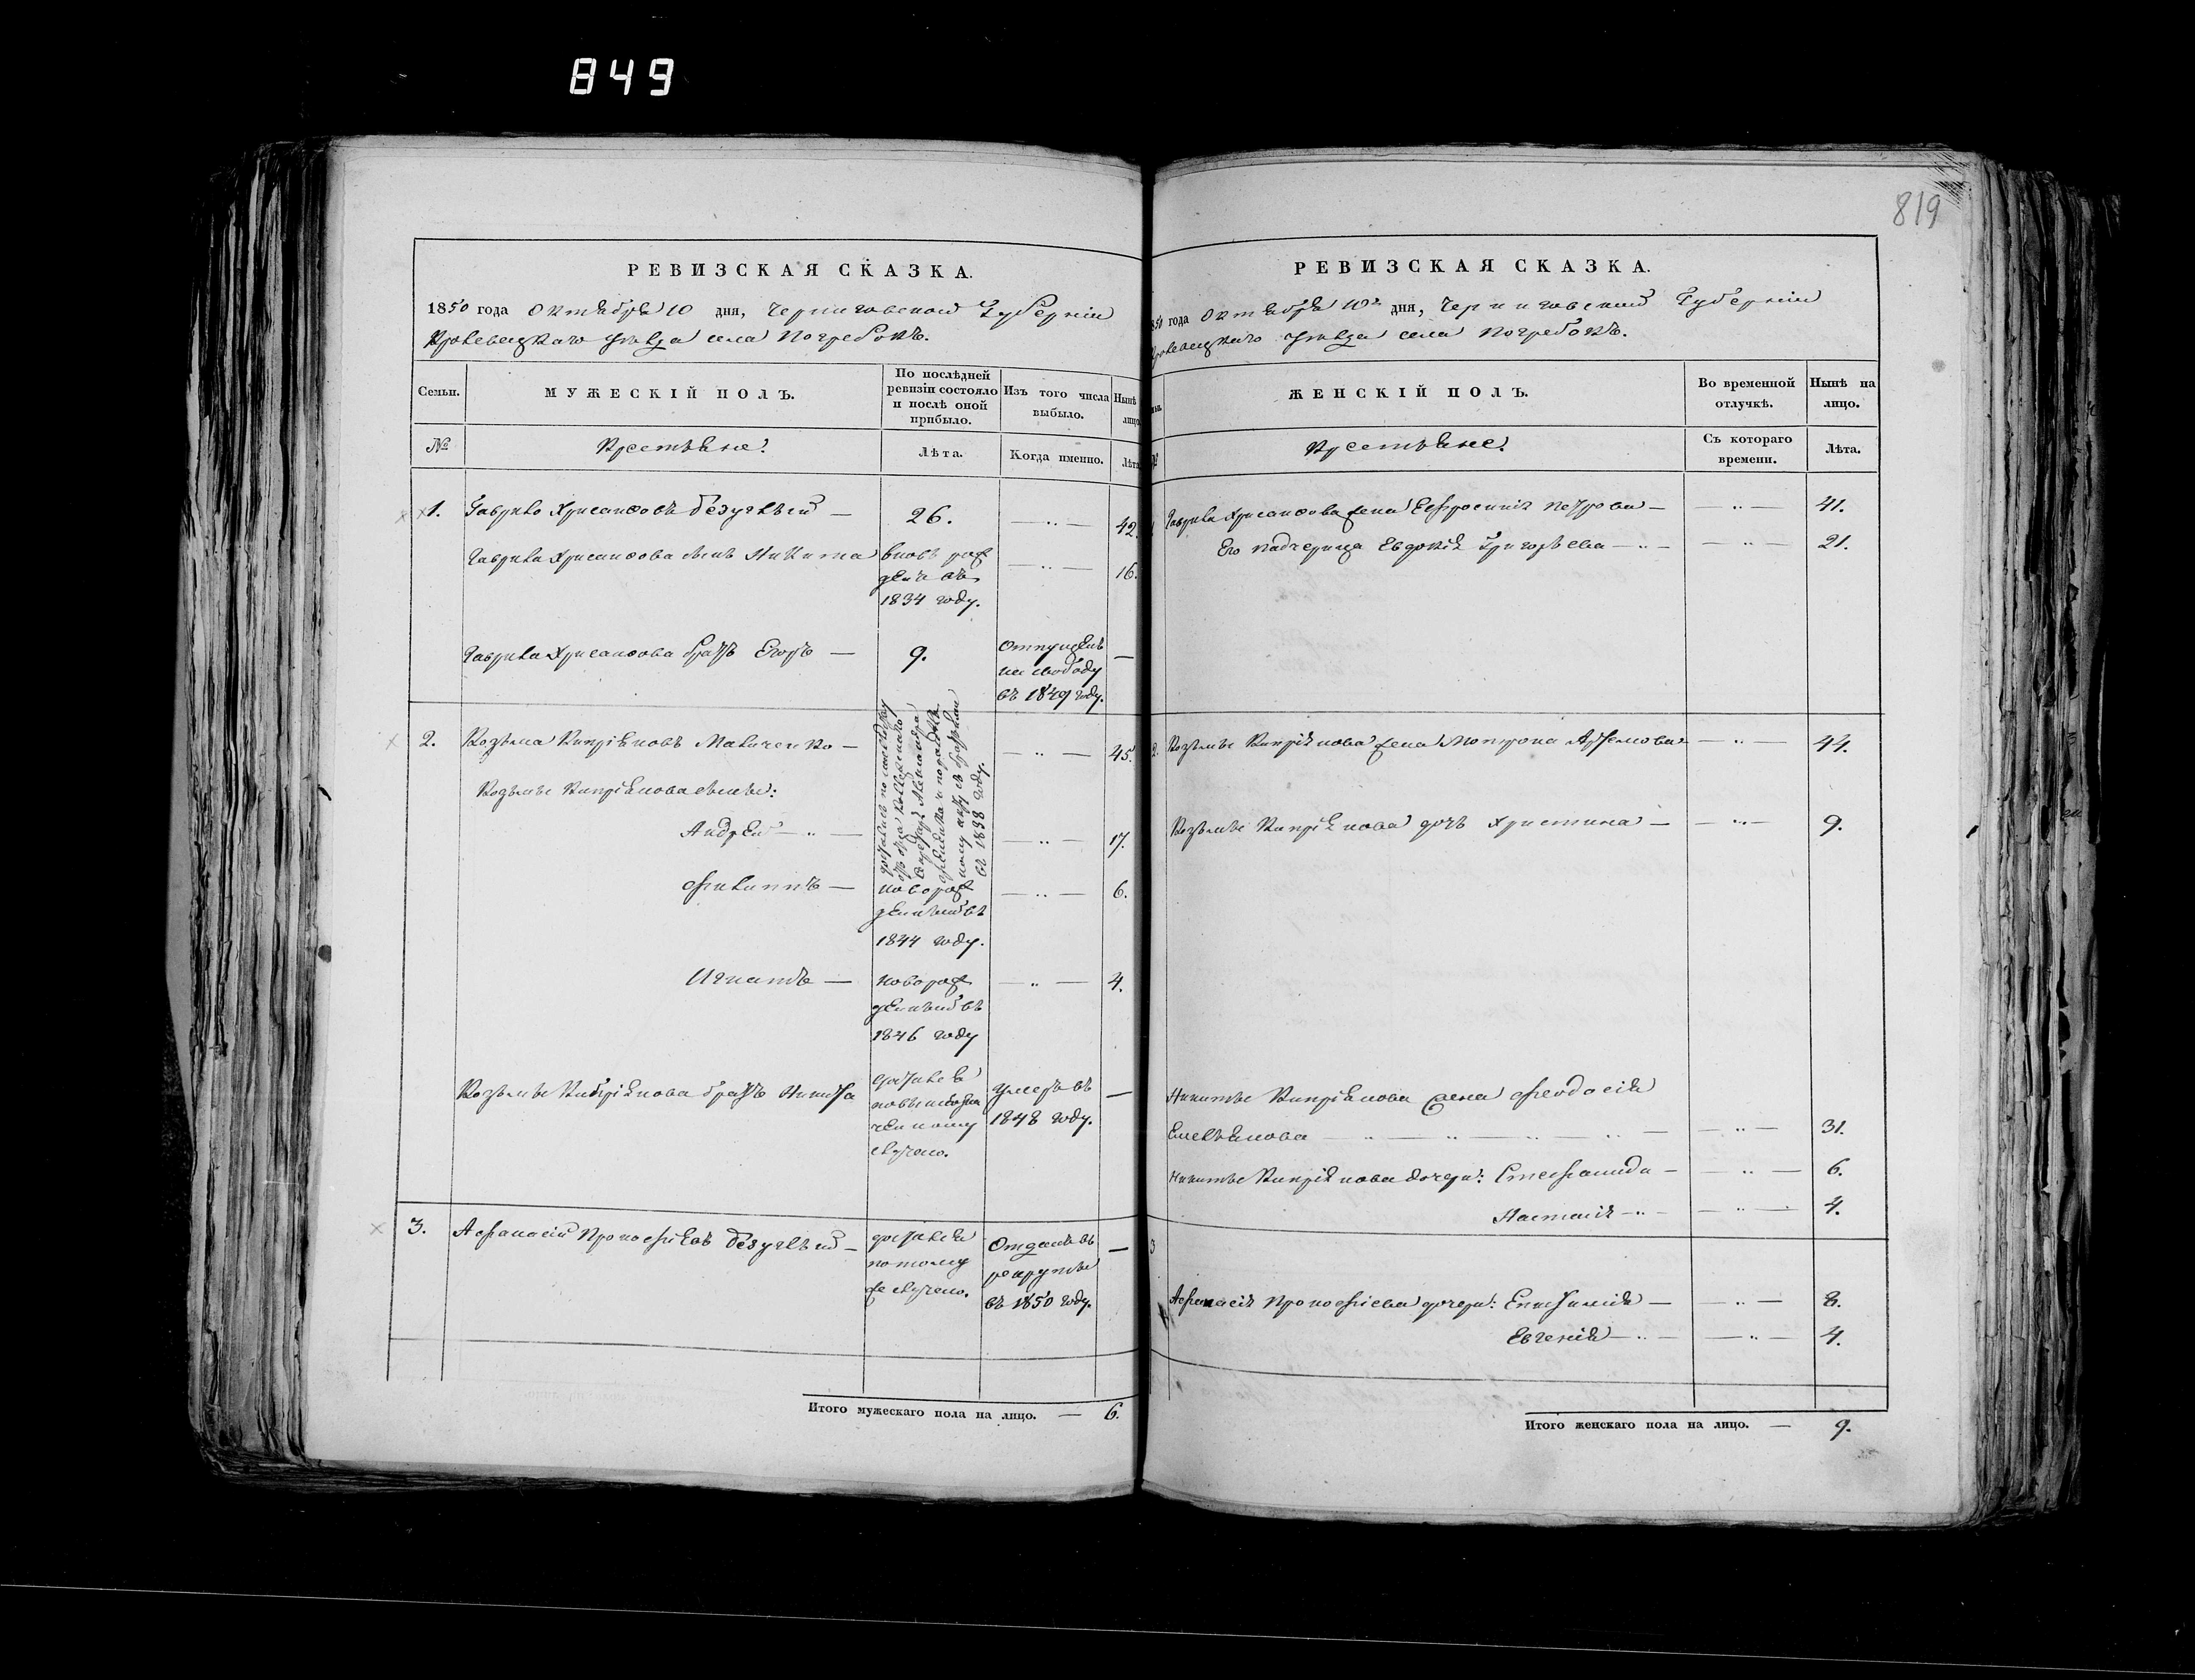 849
819
РЕВИЗСКАЯ СКАЗКА.
1850 года Октября 10 дня, Черниговской Губерніи
Кролевецкаго уѣзда села Погребокъ.
Семьи.
МУЖЕСКІЙ ПОЛЪ.
По послѣдней
ревизіи состояло
и послѣ оной
прибыло.
Изъ того числа
выбыло.
Нынѣ
лицо
№
Крестьяне:
Лѣта.
Когда именно.
Лѣта
1. Гаврило Хрисанфовъ Безуглый — 26. — „ — 42.
Гаврила Хрисанфова сынъ Никита
вновь рож
денъ въ
1834 году.
— „ — 16.
Гаврила Хрисанфова братъ Егоръ — 9.
Отпущенъ
на свободу
въ 1849 году.
—
2. Козьма Кипріяновъ — „ — 45.
Козьмы Кипріянова сыны:
Андрей — „ — — „ — 17.
въ 1838 году.
Филиппъ —
новорож
денный въ
1844 году.
— „ — 6.
Игнатъ —
новорож
денный въ
1846 году
— „ — 4.
Козьмы Кипріянова братъ Никита
чен ному
случаю.
умеръ въ
1848 году.
—
3. Афанасій Прокофіевъ Безуглый —
по тому
же случаю.
Отданъ въ
рекруты
въ 1850 году.
—
Итого мужескаго пола на лицо. — 6.
РЕВИЗСКАЯ СКАЗКА.
1850 года Октября 10 дня, Черниговской Губерніи
Кролевецкаго уѣзда села Погребокъ.
ЖЕНСКІЙ ПОЛЪ.
Во временной
отлучкѣ.
Нынѣ на
лицо.
Крестьяне:
Съ котораго
времени.
Лѣта.
Гаврила Хрисанфова жена Ефросинія Петрова — — „ — 41.
Его падчерица Евдокія Григорьева — „ — — „ — 21.
2. Козьмы Кипріянова жена Матрона Артемова — „ — 44.
Козьмы Кипріянова дочь Христина — — „ — 9.
Никиты Кипріянова жена Феодосія
Емельянова — „ — „ — „ — „ — — „ — 31.
Никиты Кипріянова дочери: Степанида — — „ — 6.
Настасія — „ — — „ — 4.
3
Афанасія Прокофіева дочери: — „ — 8.
Евгенія — „ — — „ — 4.
Итого женскаго пола на лицо. — 9.